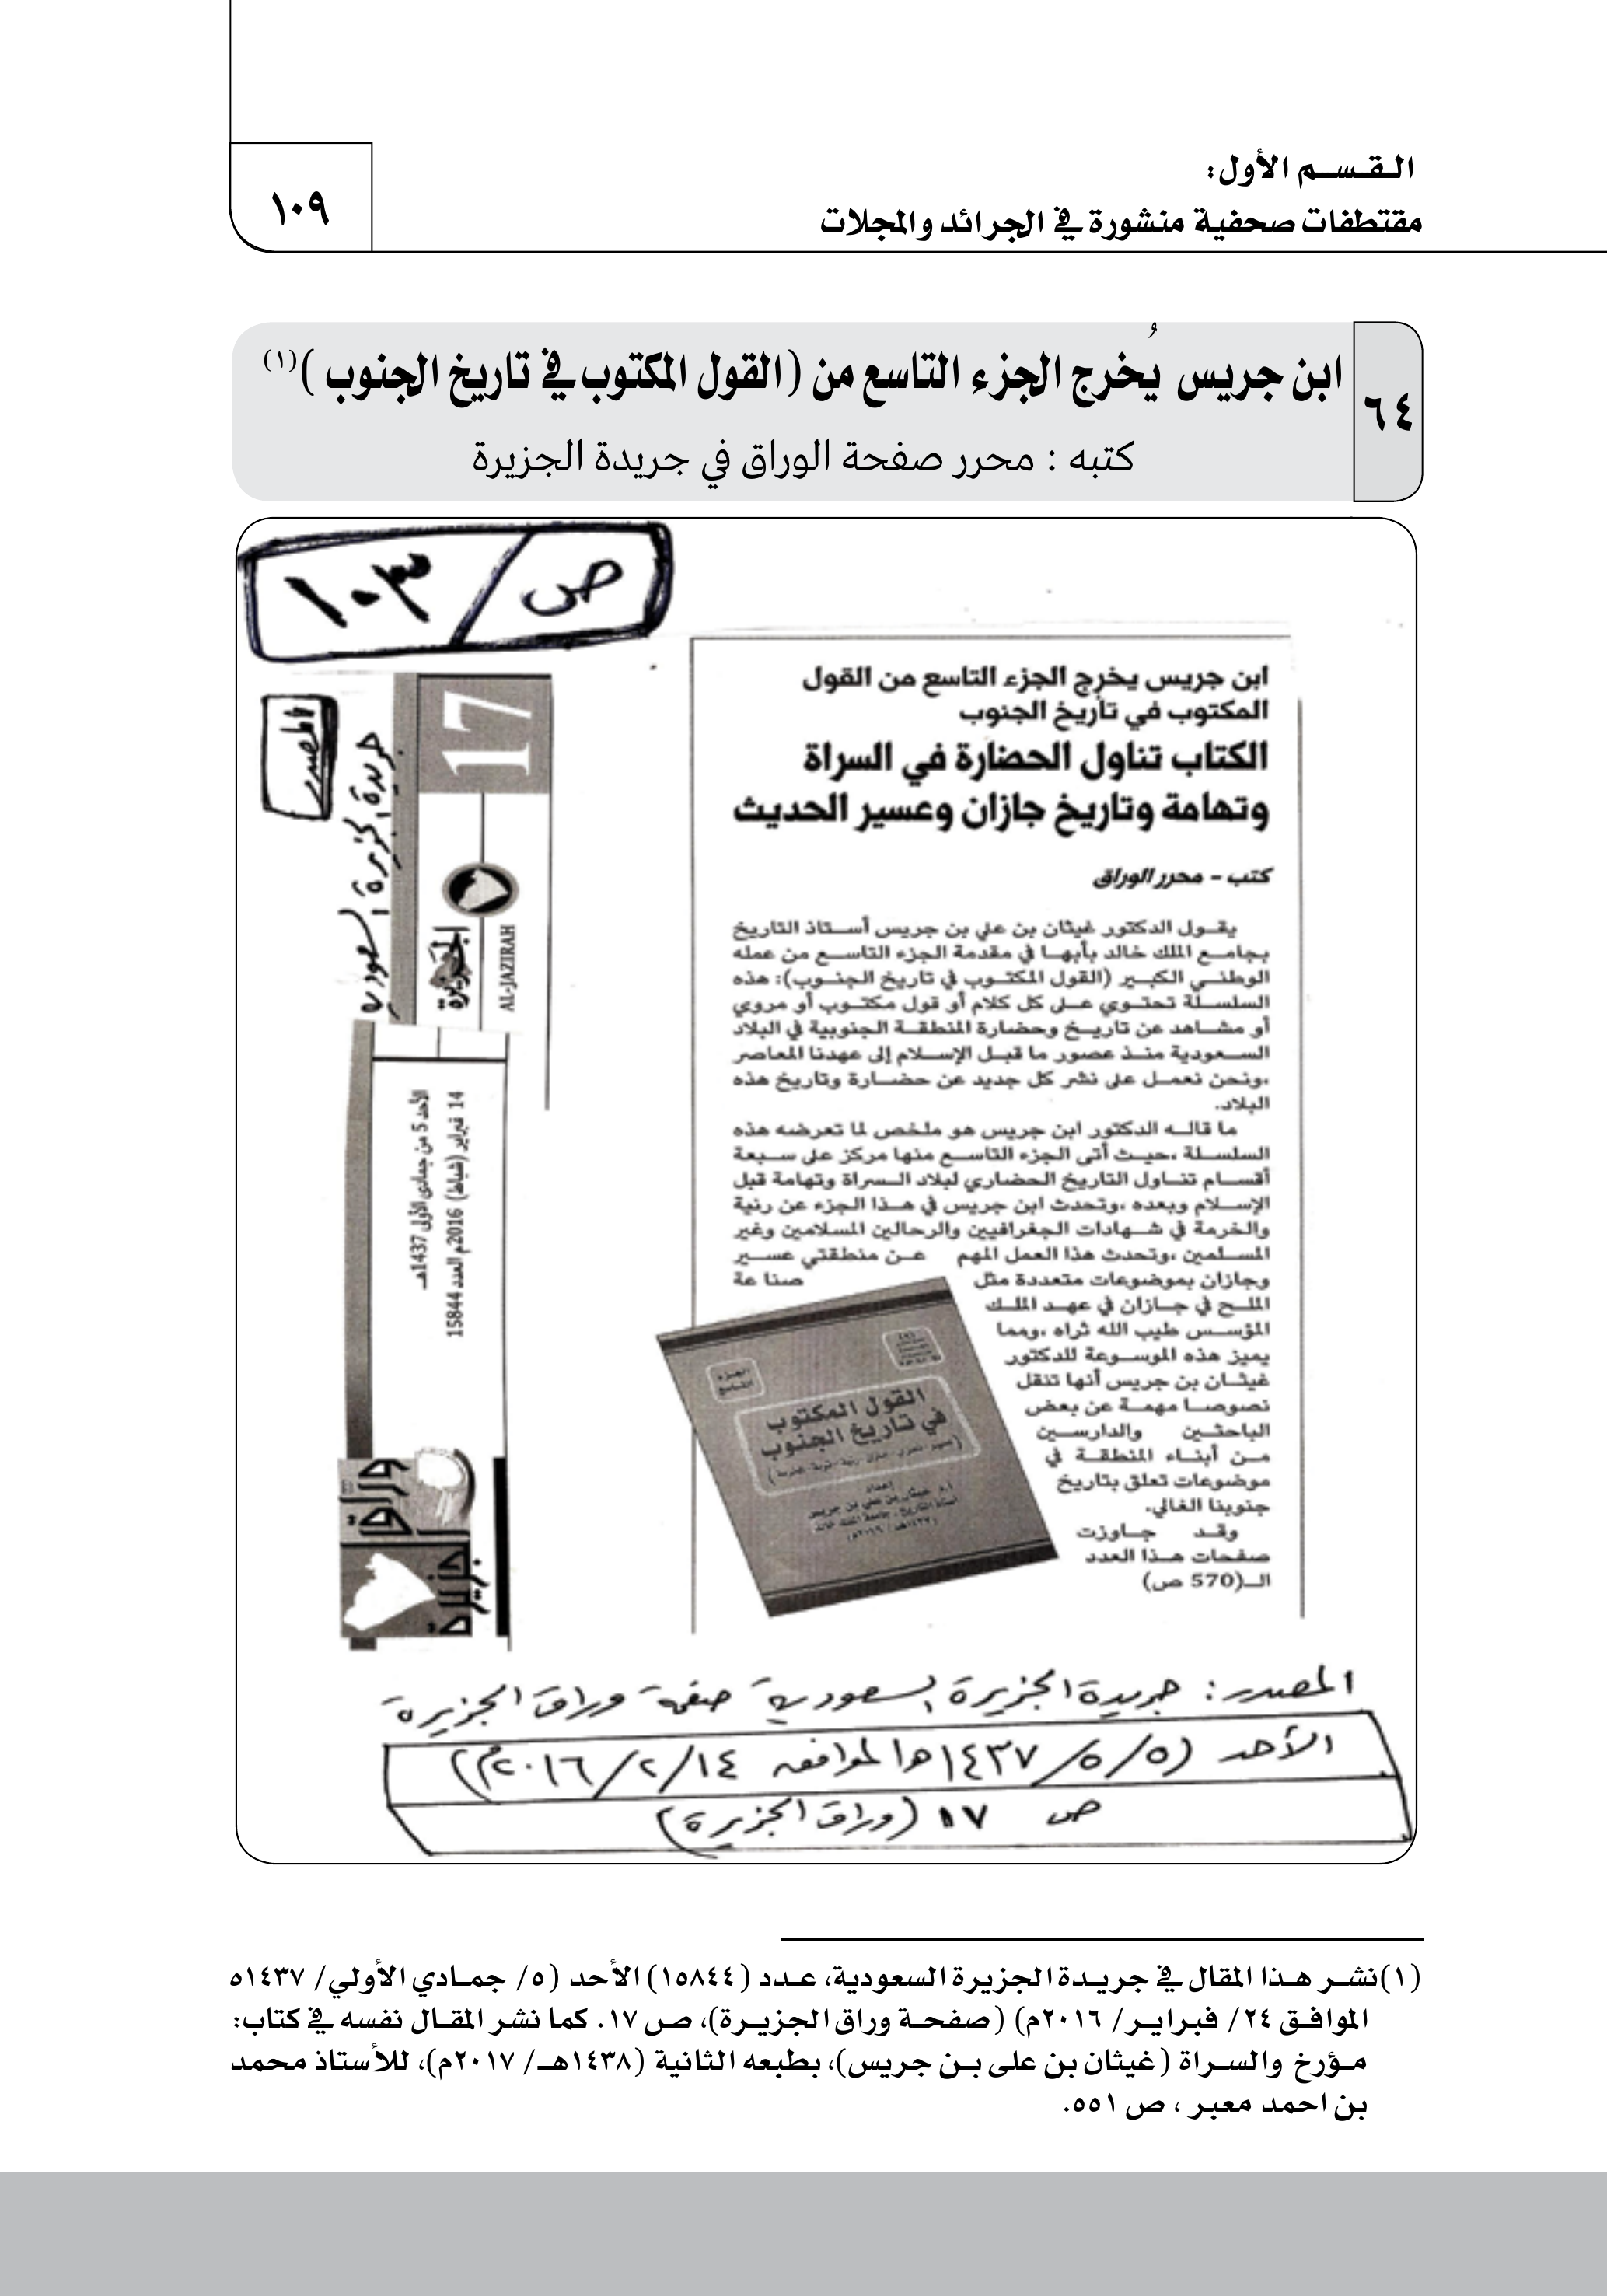 القسم الأول:
مقتطفات صحفية منشورة في الجرائد والمجلات
١٠٩
٦٤
ابن جريس يُخرج الجزء التاسع من (القول المكتوب في تاريخ الجنوب )(١)
كتبه : محرر صفحة الوراق في جريدة الجزيرة
ص / ١٠٣
ابن جريس يخرج الجزء التاسع من القول
المكتوب في تاريخ الجنوب
الكتاب تناول الحضارة في السراة
وتهامة وتاريخ جازان وعسير الحديث
كتب - محرر الوراق
يقول الدكتور غيثان بن علي بن جريس أستاذ التاريخ
بجامع الملك خالد بأبها في مقدمة الجزء التاسع من عمله
الوطني الكبير (القول المكتوب في تاريخ الجنوب): هذه
السلسلة تحتوي على كل كلام أو قول مكتوب أو مروي
أو مشاهد عن تاريخ وحضارة المنطقة الجنوبية في البلاد
السعودية منذ عصور ما قبل الإسلام إلى عهدنا المعاصر
،ونحن نعمل على نشر كل جديد عن حضارة وتاريخ هذه
البلاد.
ما قاله الدكتور ابن جريس هو ملخص لما تعرضه هذه
السلسلة ،حيث أتى الجزء التاسع منها مركز على سبعة
أقسام تناول التاريخ الحضاري لبلاد السراة وتهامة قبل
الإسلام وبعده ،وتحدث ابن جريس في هذا الجزء عن رنية
والخرمة في شهادات الجغرافيين والرحالين المسلامين وغير
المسلمين ،وتحدث هذا العمل المهم عن منطقتي عسير
وجازان بموضوعات متعددة مثل صناعة
الملح في جازان في عهد الملك
المؤسس طيب الله ثراه ،ومما
يميز هذه الموسوعة للدكتور
غيثان بن جريس أنها تنقل
نصوصا مهمة عن بعض
الباحثين والدارسين
من أبناء المنطقة في
موضوعات تعلق بتاريخ
جنوبنا الغالي.
وقد جاوزت
صفحات هذا العدد
الـ(570 ص)
الجزء
التاسع
القول المكتوب
في تاريخ الجنوب
إعداد
أ.د. غيثان بن علي بن جريس
أستاذ التاريخ - جامعة الملك خالد
(١٤٣٧هـ / ٢٠١٦م)
المصدر
جريدة الجزيرة السعودية
17
الجزيرة
AL-JAZIRAH
الأحد 5 من جمادى الأولى 1437هـ
14 فبراير (شباط) 2016م العدد 15844
وراق
الجزيرة
المصدر: جريدة الجزيرة السعودية صفحة وراق الجزيرة
الأحد (٥/٥/١٤٣٧هـ الموافق ١٤/٢/٢٠١٦م)
ص ١٧ (وراق الجزيرة)
(١)نشر هذا المقال في جريدة الجزيرة السعودية، عدد (١٥٨٤٤) الأحد (٥/ جمادي الأولي/ ١٤٣٧٥
الموافق ٢٤/ فبراير/ ٢٠١٦م) (صفحة وراق الجزيرة)، ص ١٧. كما نشر المقال نفسه في كتاب:
مؤرخ والسراة (غيثان بن على بن جريس)، بطبعه الثانية (١٤٣٨هـ/ ٢٠١٧م)، للأستاذ محمد
بن احمد معبر ، ص ٥٥١.